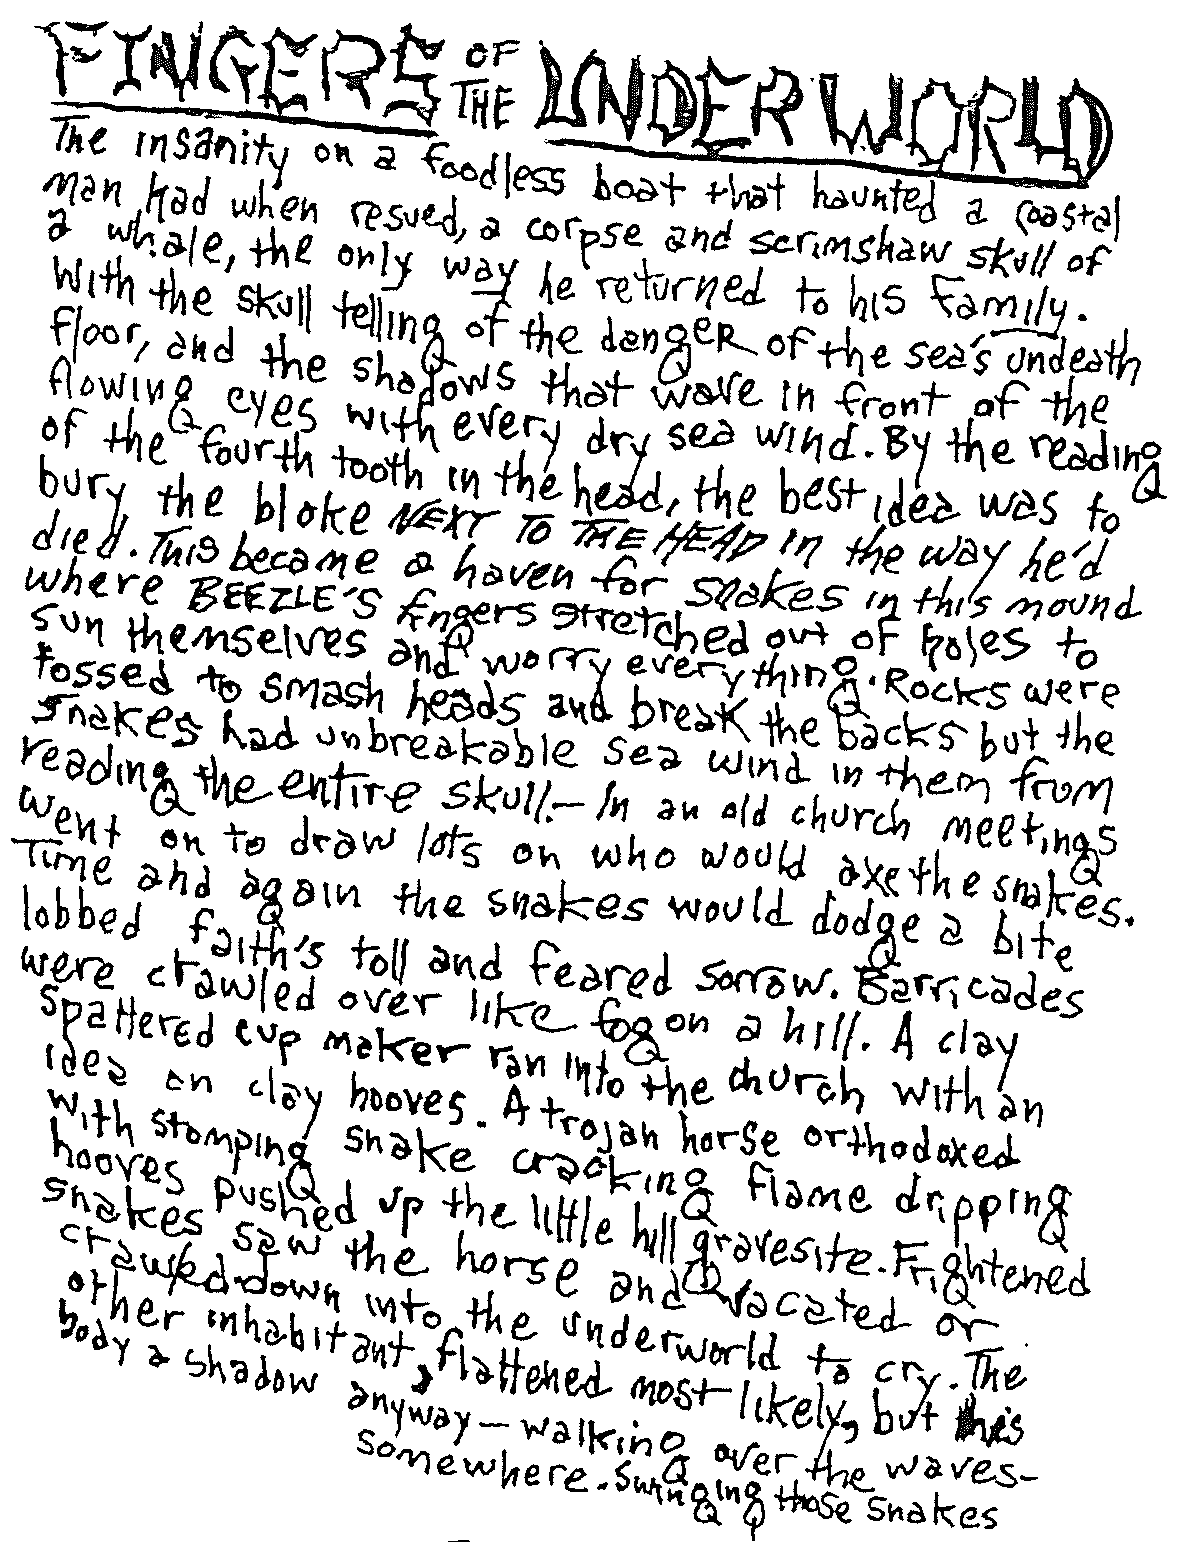 FINGERS OF THE UNDERWORLD
The insanity on a foodless boat that haunted a coastal
man had when resued, a corpse and scrimshaw skull of
a whale, the only way he returned to his family.
With the skull telling of the danger of the sea's undeath
floor, and the shadows that wave in front of the
flowing eyes with every dry sea wind. By the reading
of the fourth tooth in the head, the best idea was to
bury the bloke NEXT TO THE HEAD in the way he'd
died. This became a haven for snakes in this mound
where BEEZLE'S fingers stretched out of holes to
sun themselves and worry everything. Rocks were
tossed to smash heads and break the backs but the
snakes had unbreakable sea wind in them from
reading the entire skull. - In an old church meetings
went on to draw lots on who would axe the snakes.
Time and again the snakes would dodge a bite
lobbed faith's toll and feared sorrow. Barricades
were crawled over like fog on a hill. A clay
spattered cup maker ran into the church with an
idea on clay hooves. A trojan horse orthodoxed
with stomping snake cracking flame dripping
hooves pushed up the little hill gravesite. Frightened
snakes saw the horse and vacated or
crawled down into the underworld to cry. The
other inhabitant, flattened most likely, but his
body a shadow anyway - walking over the waves-
somewhere. Swinging those snakes